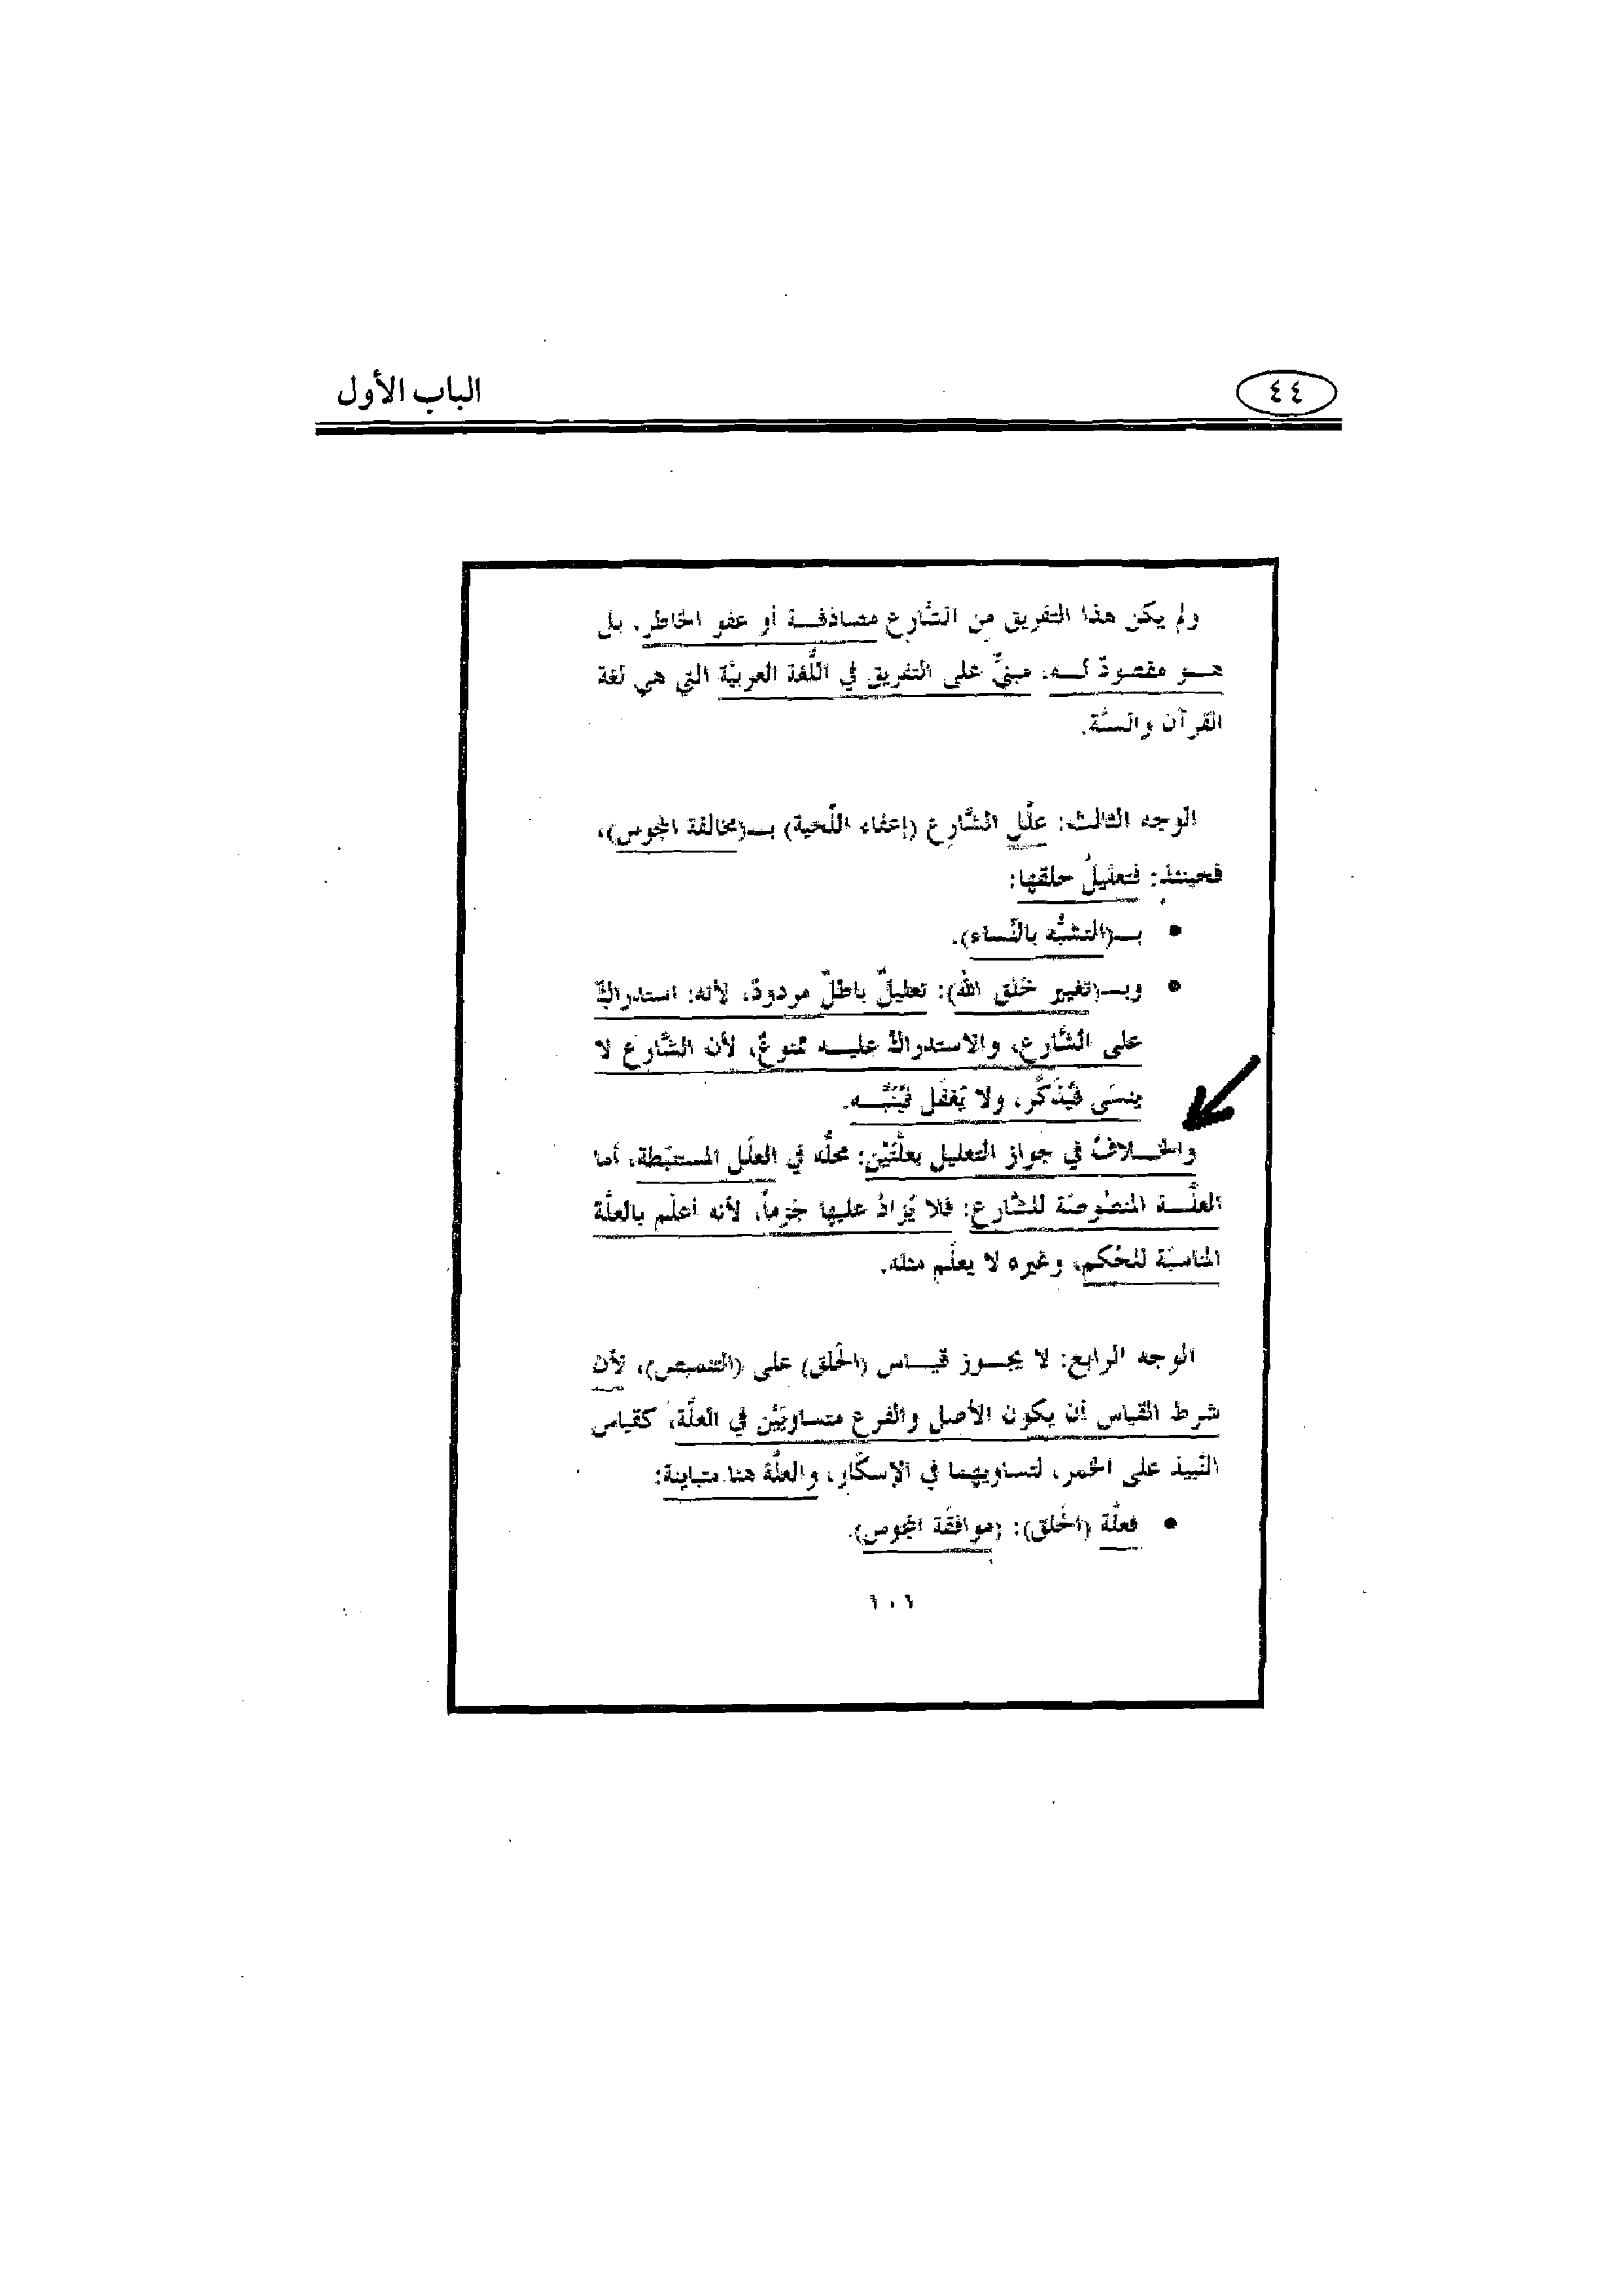 ٤٤
الباب الأول
ولم يكن هذا التفريق من الشَّارع مصادَفـة أو عفو الخاطر، بل
هـو مقصودٌ لـه، مبنيٌّ على التفريق في اللُّغة العربيَّة التي هي لغة
القرآن والسنَّة.
الوجه الثالث: علَّل الشَّارع (إعفاء اللِّحية) بـ(مخالفة المجوس)،
فحينئذ: فتعليلُ حلقها:
• بـ(التشبُّه بالنِّساء).
• وبـ(تغيير خَلق الله): تعليلٌ باطلٌ مردودٌ، لأنه: استدراكٌ
على الشَّارع، والاستدراكُ عليـه ممنوعٌ، لأن الشَّارعَ لا
ينسَى فيُذكَّر، ولا يَغفَل فيُنَبَّـه.
والخـلافُ في جواز التعليل بعلَّتَيْن: محلُّه في العلَل المستنبَطة، أما
العلَّـة المنصُوصَة للشَّارع: فلا يُزادُ عليها جَزماً، لأنه أعلَم بالعلَّة
المناسبَة للحُكم، وغيره لا يعلَم مثله.
الوجه الرابع: لا يجـوز قيـاس (الحَلق) على (التنميص)، لأن
شرط القياس أن يكون الأصل والفرع متساويَيْن في العلَّة، كقياس
النَّبيذ على الخمر، لتساويهما في الإسكَار، والعلَّة هنا متباينة:
• فعلَّة (الحَلق): (موافقَة المجوس).
٦٠٦